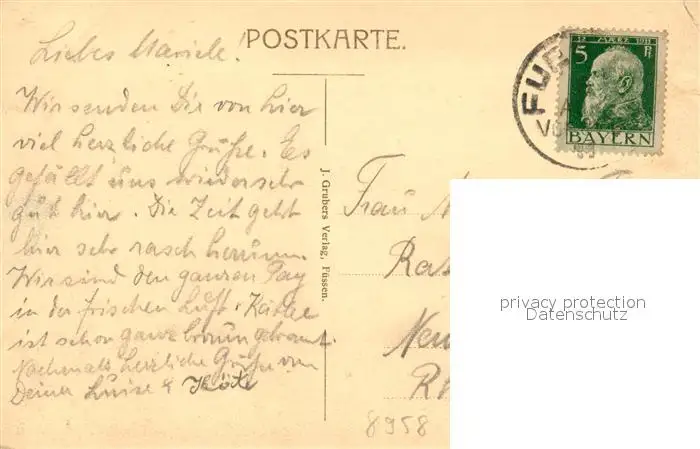 POSTKARTE.
Liebes Mariele!
Wir senden Dir von hier
viel herzliche Grüße. Es
gefällt uns wieder sehr
gut hier. Die Zeit geht
hier sehr rasch herum.
Wir sind den ganzen Tag
in der frischen Luft. Käthe
ist schon ganz braun gebrannt.
Nochmals herzliche Grüße von
Deiner Luise &
J. Grubers Verlag, Füssen.
12 MÄRZ 1911
5 Pf
BAYERN
FÜ
Frau
8958
privacy protection
Datenschutz